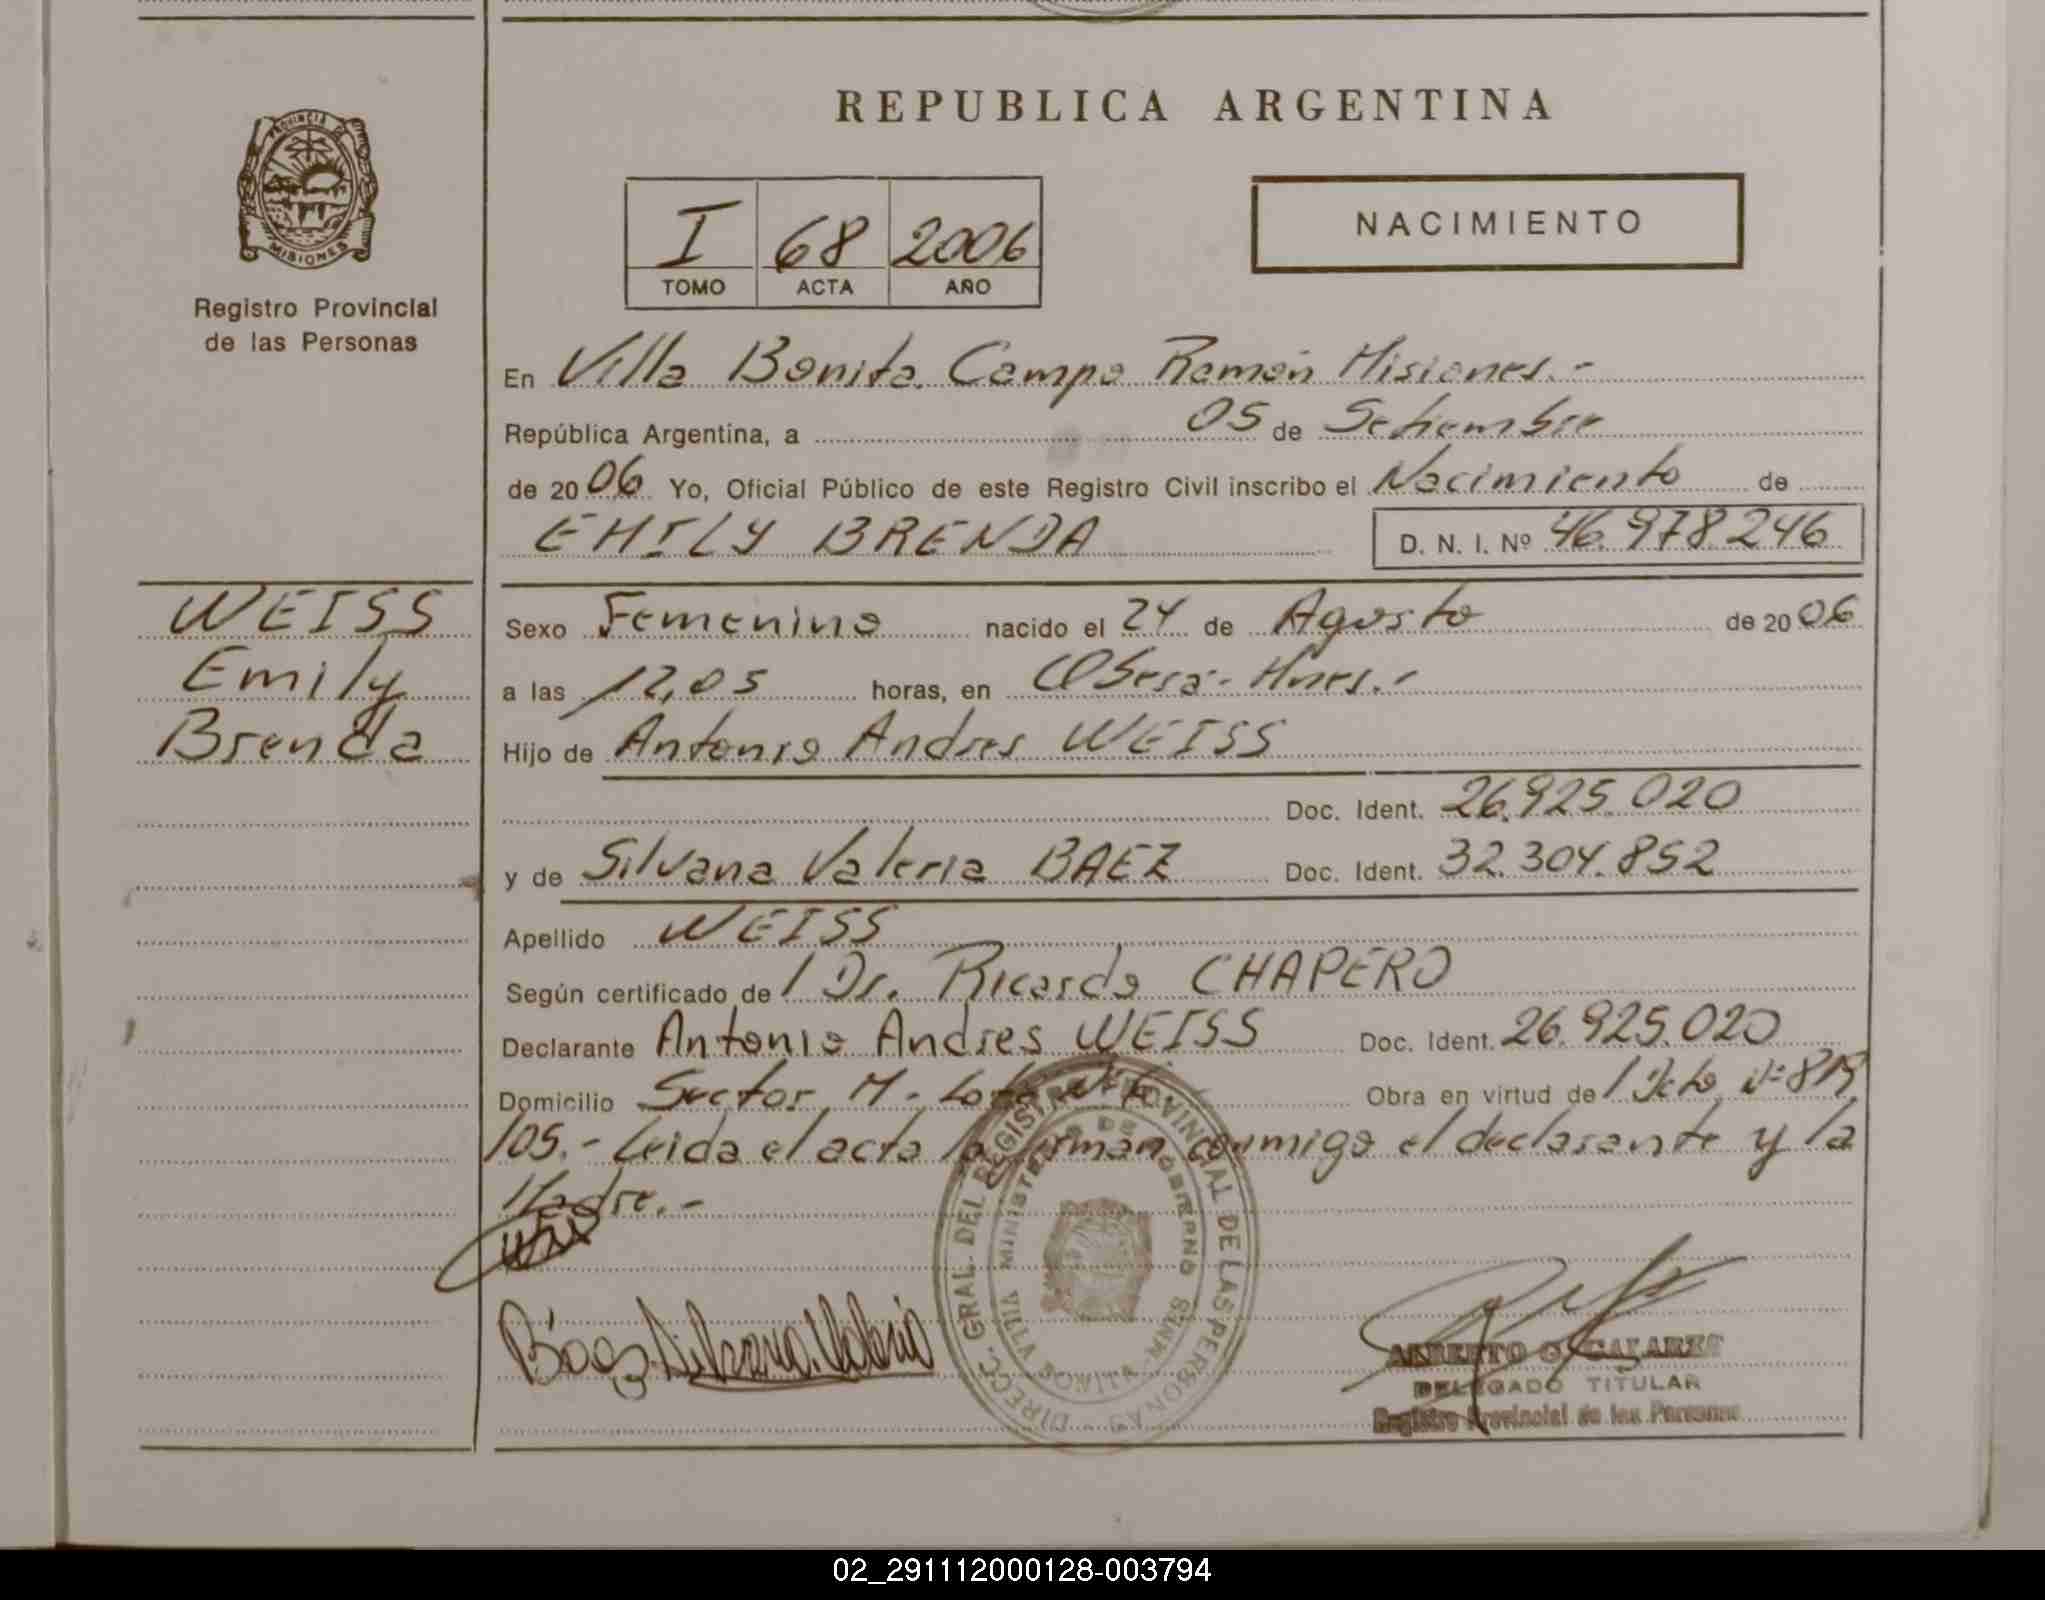 REPUBLICA ARGENTINA
PROVINCIA DE
MISIONES
Registro Provincial
de las Personas
I 68 2006
TOMO ACTA AÑO
NACIMIENTO
En Villa Bonita. Campo Ramón Misiones.-
República Argentina, a 05 de Setiembre
de 2006 Yo, Oficial Público de este Registro Civil inscribo el Nacimiento de
EMILY BRENDA D. N. I. Nº 46.978.246
WEISS
Emily
Brenda
Sexo Femenino nacido el 24 de Agosto de 2006
a las 12,05 horas, en Oberá - Mnes.-
Hijo de Antonio Andres WEISS
Doc. Ident. 26.925.020
y de Silvana Valeria BAEZ Doc. Ident. 32.304.852
Apellido WEISS
Según certificado de / Dr. Ricardo CHAPERO
Declarante Antonio Andres WEISS Doc. Ident. 26.925.020
Domicilio Sector M. Lote Obra en virtud de / Dcto Nº 819
/05.- Leida el acta la firman conmigo el declarante y la
Madre.-
Báez Silvana Valeria
DIRECC. GRAL. DEL REGISTRO PROVINCIAL DE LAS PERSONAS
MINISTERIO DE GOBIERNO
VILLA BONITA - MNES
ALBERTO O.
DELEGADO TITULAR
Registro Provincial de las Personas
02_291112000128-003794